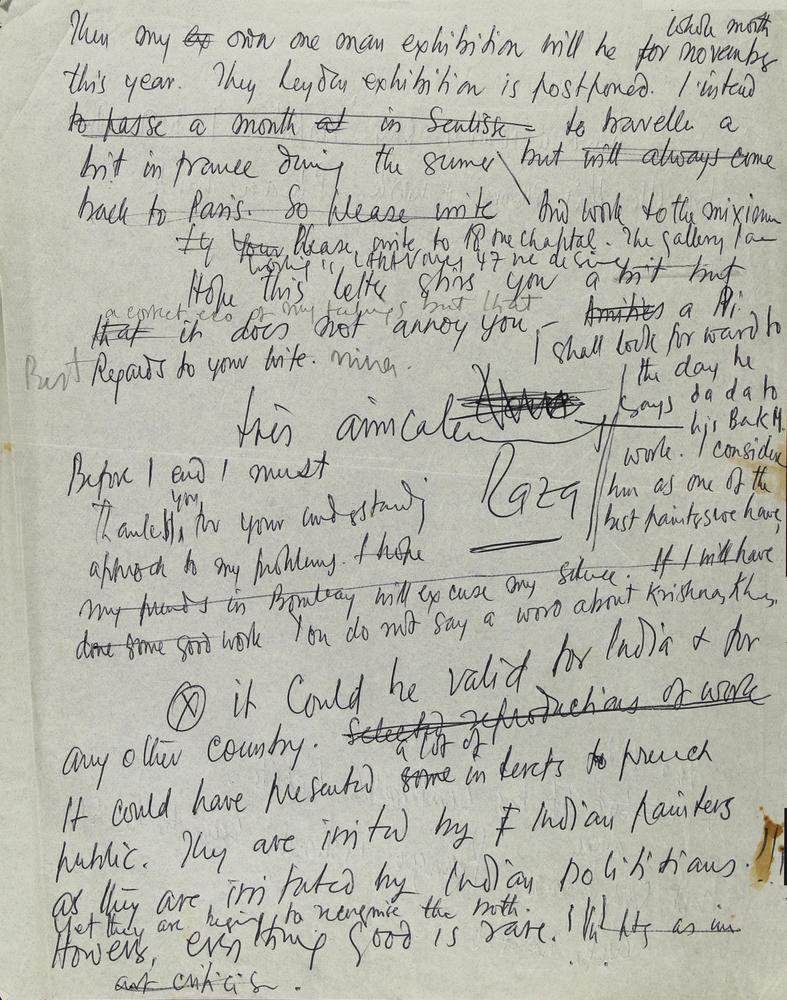 whole month
Then my ex own one man exhibition will be for november
this year. They Leyden exhibition is postponed. I intend
to passe a month at in - to travelle a
bit in france during the summer but will always come
back to Paris. So please write And work to the miximum
If Your Please write to 18 rue chaptal. The gallery
47 rue de Seine
Hope this letter gives you a bit but
a correct of my but that
that it does not annoy you - Amitiés a
I shall look forward to
Best Regards to your wife.
the day he
says da da to
his Bak
très amicalement
work. I consider
him as one of the
best painters we have,
Raza
Before I end I must
you
Thank for your understanding
approch to my problems. I hope
my friends in Bombay will excuse my silence. If I will have
done some good work You do not say a word about Krishna,
ⓧ it could be valid for India & for
any other country. Selected reproductions of work
a lot of
It could have presented some interets to french
public. They are irrited by Indian painters
as they are irritated by Indian politicians.
Yet they are begin to recognise the truth.
However, everything good is rare. as in
art criticism.